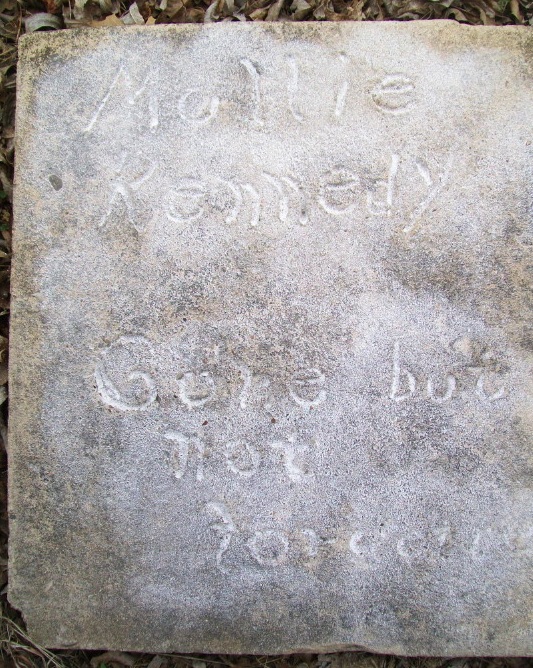 Mollie
Kennedy
Gone but
not